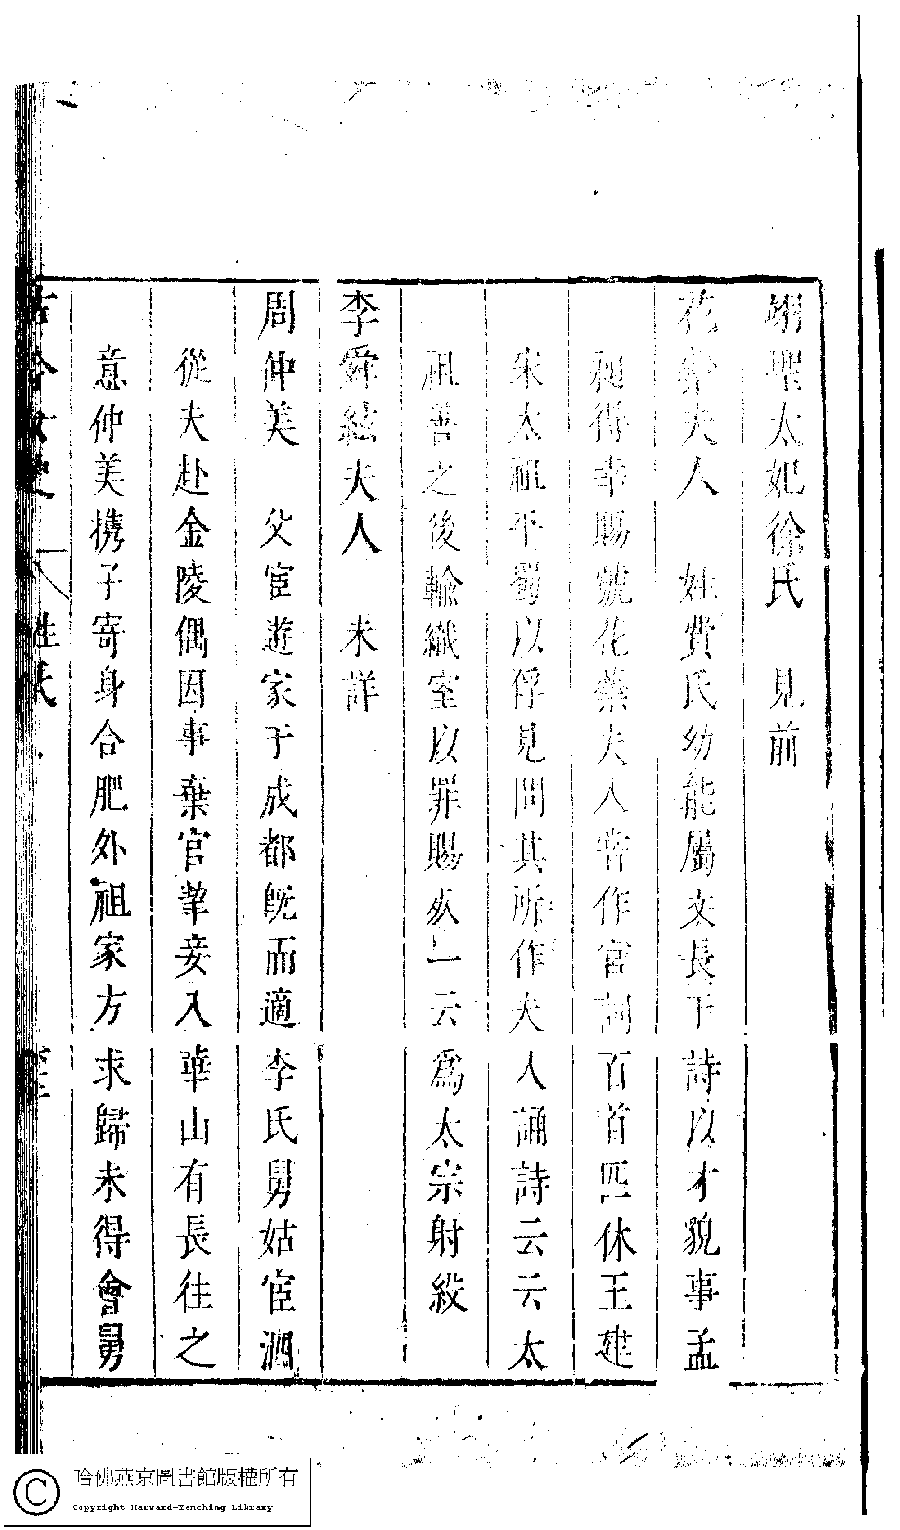 翊聖太妃徐氏　見前
花蕊夫人　姓費氏幼能屬文長于詩以才貌事孟
昶得幸賜號花蕊夫人嘗作宮詞百首匹休王建
宋太祖平蜀以俘見問其所作夫人誦詩云云太
祖善之後輸織室以罪賜死一云爲太宗射殺
李舜絃夫人　未詳
周仲美　父宦遊家于成都旣而適李氏舅姑宦泗
從夫赴金陵偶因事棄官挈妾入華山有長往之
意仲美携子寄身合肥外祖家方求歸未得會舅
姓氏
哈佛燕京圖書館版權所有
Copyright Harvard-Yenching Library